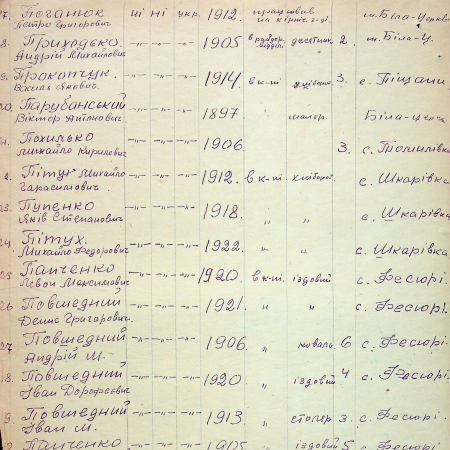 17. Поганюк ні ні укр. 1912. працював м. Біла-Церква
Петро Григорович на цукрів. з-ді
8. Приходько. -"- -"- -"- 1905 десятник 2. м. Біла-Ц.
Андрій Михайлович відділі
9. Прокопчук. -"- -"- -"- 1914. в к-ні 3. с. Піщана
Василь Якович
20. Парубанський -"- -"- -"- 1897 маляр. Біла-Церква
Віктор Антонович
21. Похилько -"- -"- -"- 1906. 3. с. Пилипівка
Михайло Кирилович
2. Пітух Михайло -"- -"- -"- 1912. в к-ні. хлібороб. с. Шкарівка
Гарасимович.
23. Пупенко -"- -"- -"- 1918. " " с. Шкарівка
Яків Степанович
24. Пітух. -"- -"- -"- 1922. " " с. Шкарівка
Михайло Федорович
25 Панченко -"- -"- -"- 1920. в к-ні. їздовий с. Фесюрі.
Левон Максимович
26 Повшедний -"- -"- -"- 1921. " " с. Фесюрі.
Денис Григорович.
27 Повшедний -"- -"- -"- 1906 " коваль. 6 с. Фесюрі.
Андрій М.
28. Повшедний -"- -"- -"- 1920. " їздовий 4 с. Фесюрі.
Іван Дорофеєвич
9. Повшедний -"- -"- -"- 1913 " столяр 3. с. Фесюрі.
Іван М.
Панченко -"- -"- -"- 1905 " їздовий 5. с. Фесюрі.